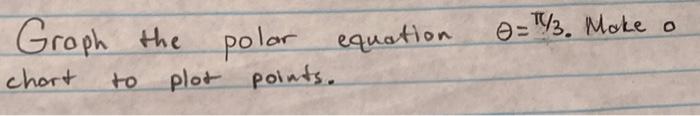 Graph the polar equation θ=π/3. Make a
chart to plot points.